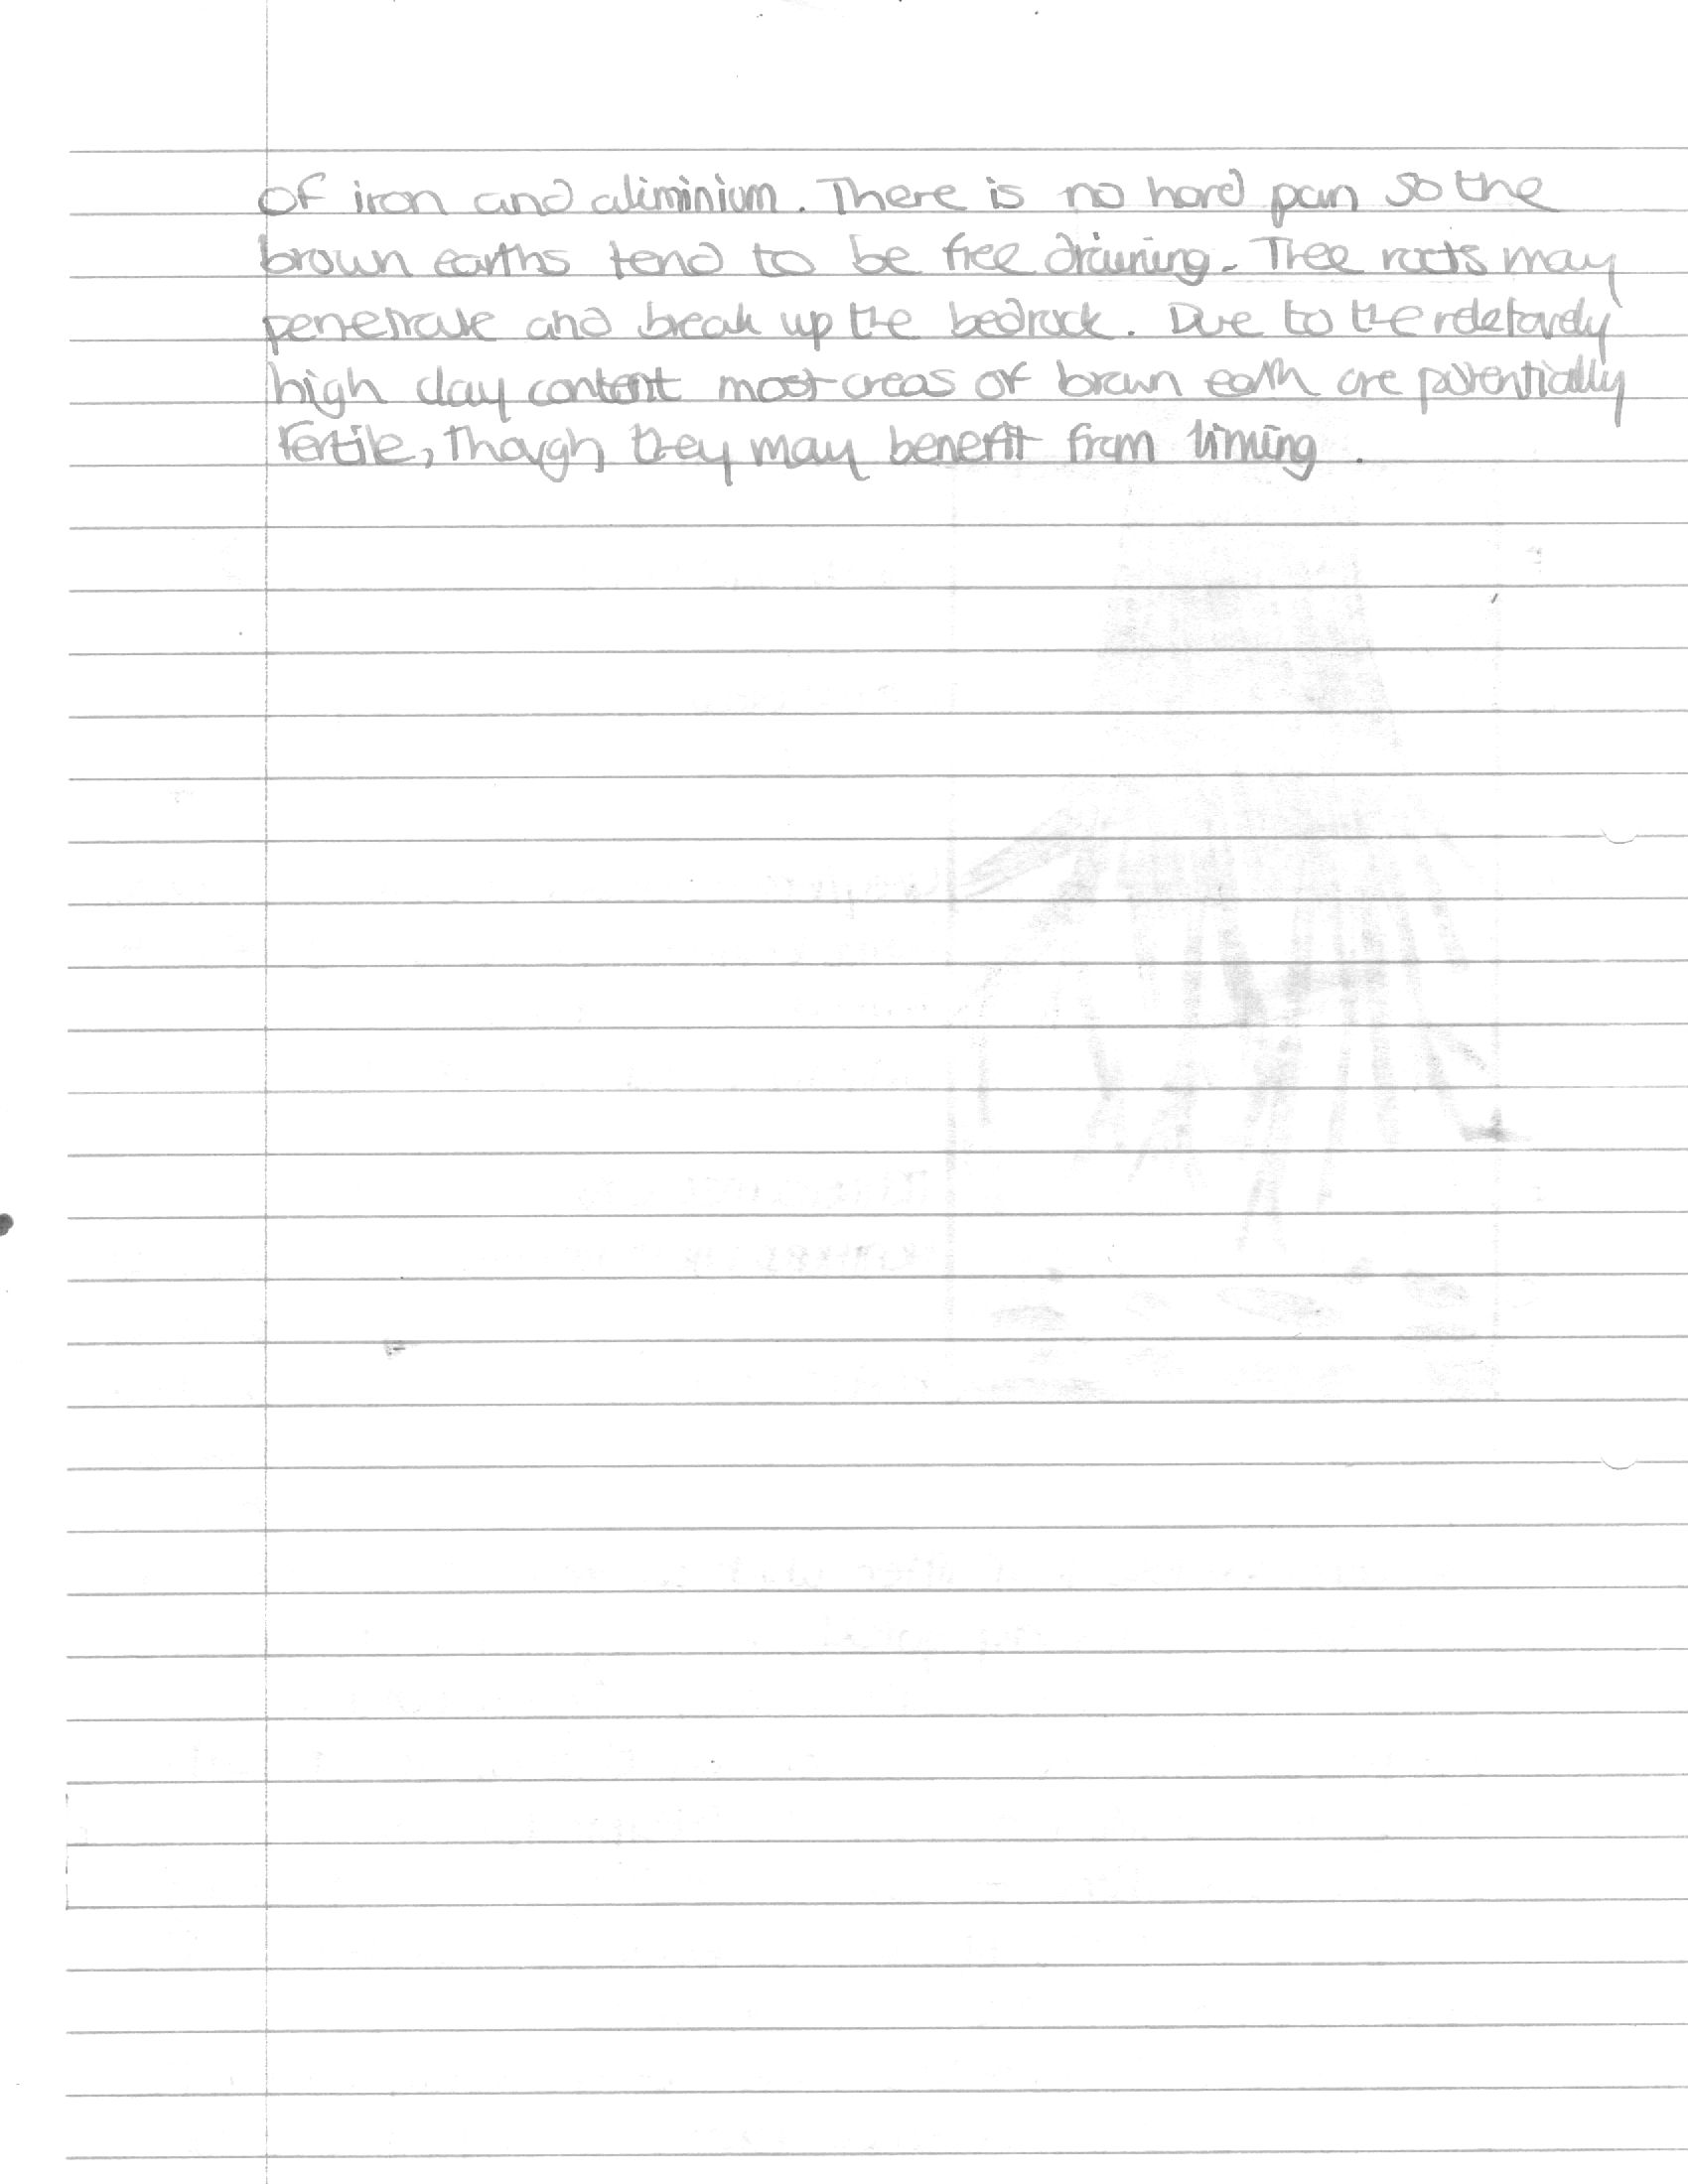 of iron and aliminium. There is no hard pan so the
brown earths tend to be free draining. Thee roots may
penetrate and break up the bedrock. Due to the reletavely
high clay content most areas of brown earth are potentially
fertile, though they may benefit from liming.